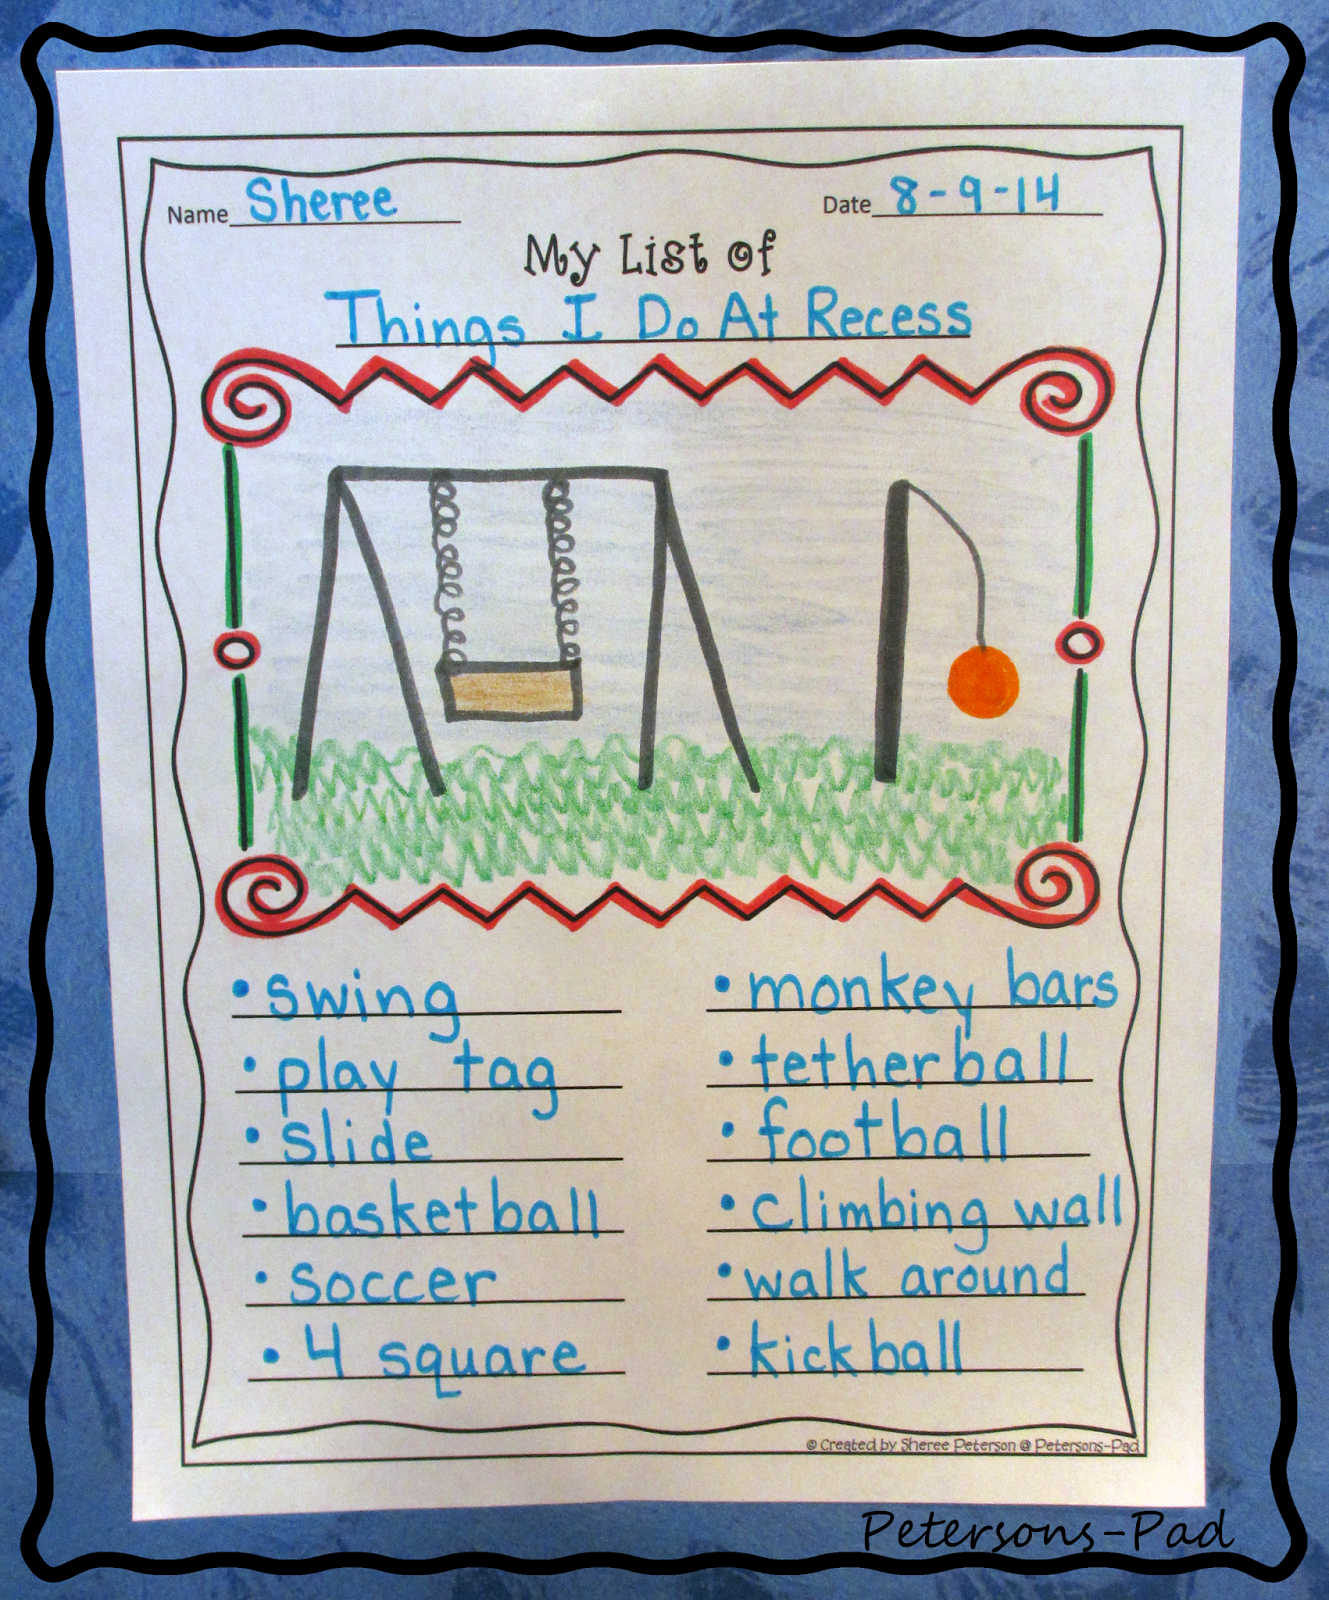 Name Sheree Date 8-9-14
My List of
Things I Do At Recess
• swing
• play tag
• slide
• basketball
• soccer
• 4 square
• monkey bars
• tetherball
• football
• climbing wall
• walk around
• kickball
© Created by Sheree Peterson @ Petersons-Pad
Petersons-Pad